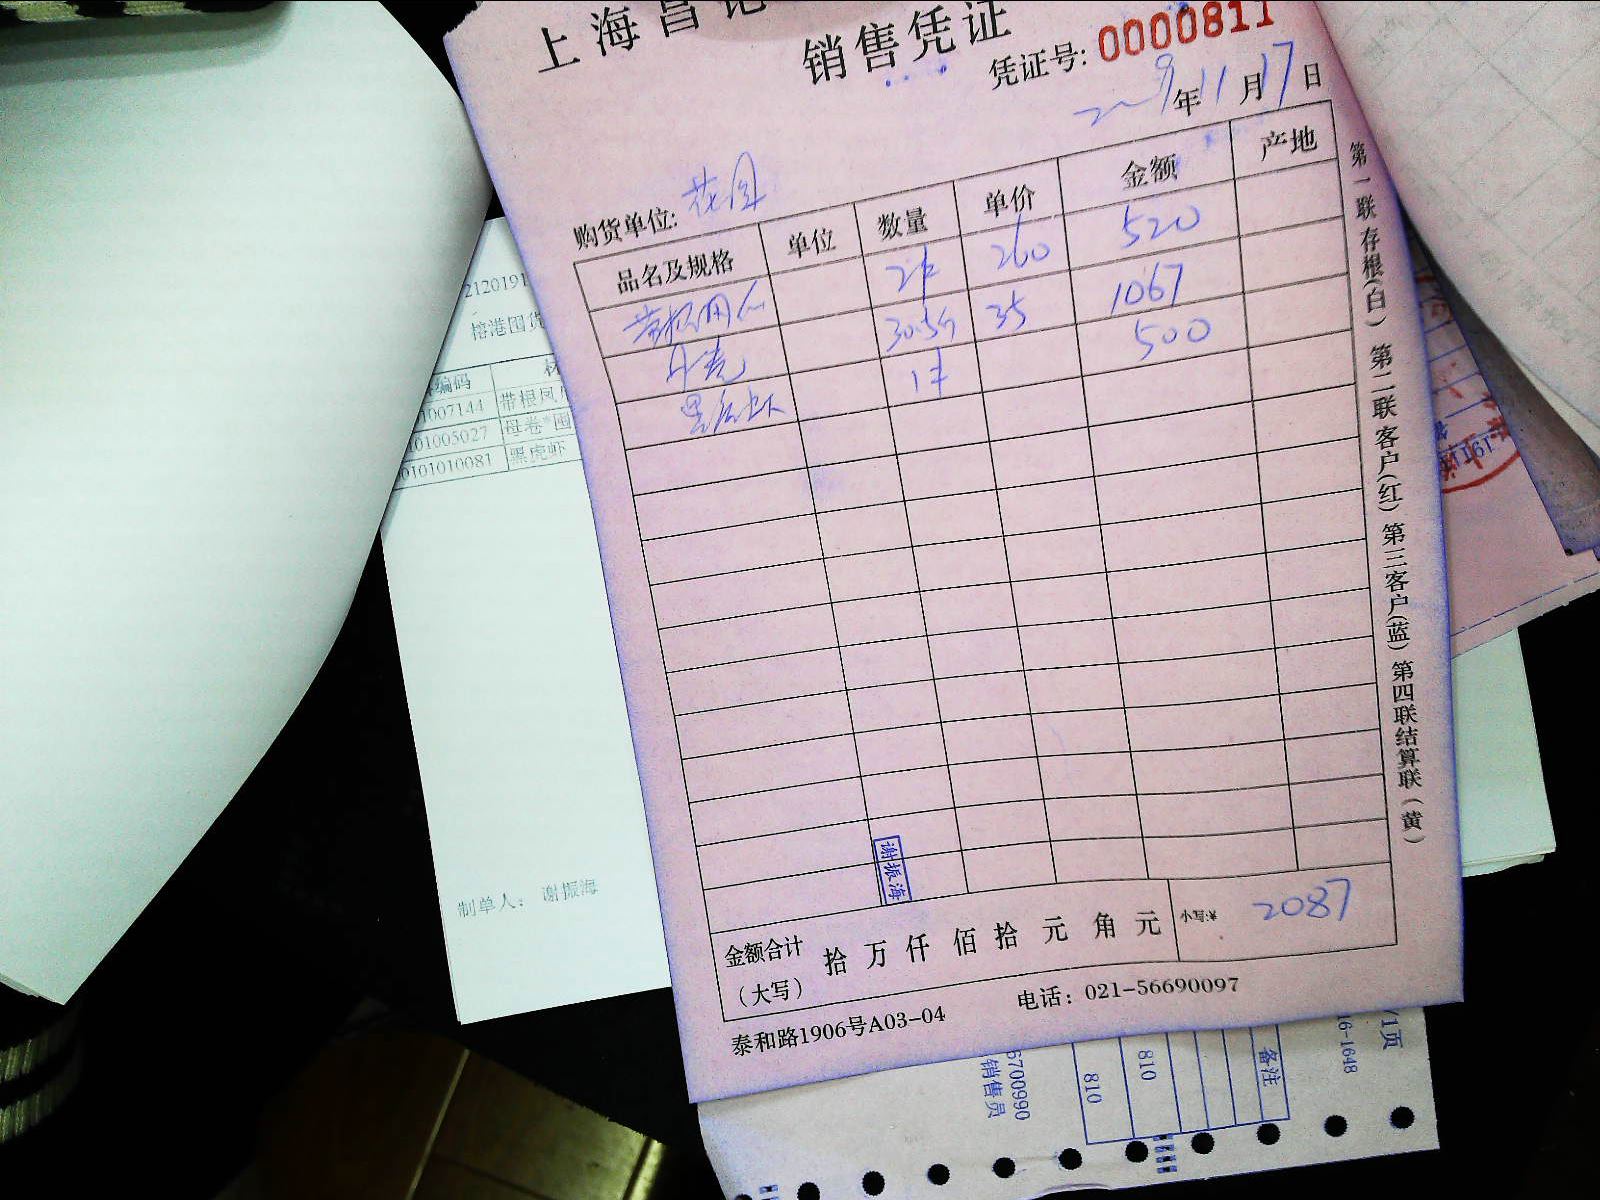 上海昌记
销售凭证
凭证号: 0000811
年11月17日
购货单位: 花园
品名及规格 单位 数量 单价 金额 产地
260 520
30.5斤 35 1067
黑虎虾 500
谢振海
金额合计(大写) 拾 万 仟 佰 拾 元 角 元 小写:¥ 2087
泰和路1906号A03-04 电话: 021-56690097
第一联存根(白) 第二联客户(红) 第三客户(蓝) 第四联结算联(黄)
2120191
榕港囤货
编码
1007144 带根凤
01005027 母卷*囤
0101010081 黑虎虾
制单人: 谢振海
/1页
16-1648
备注
810
810
6700990
销售员